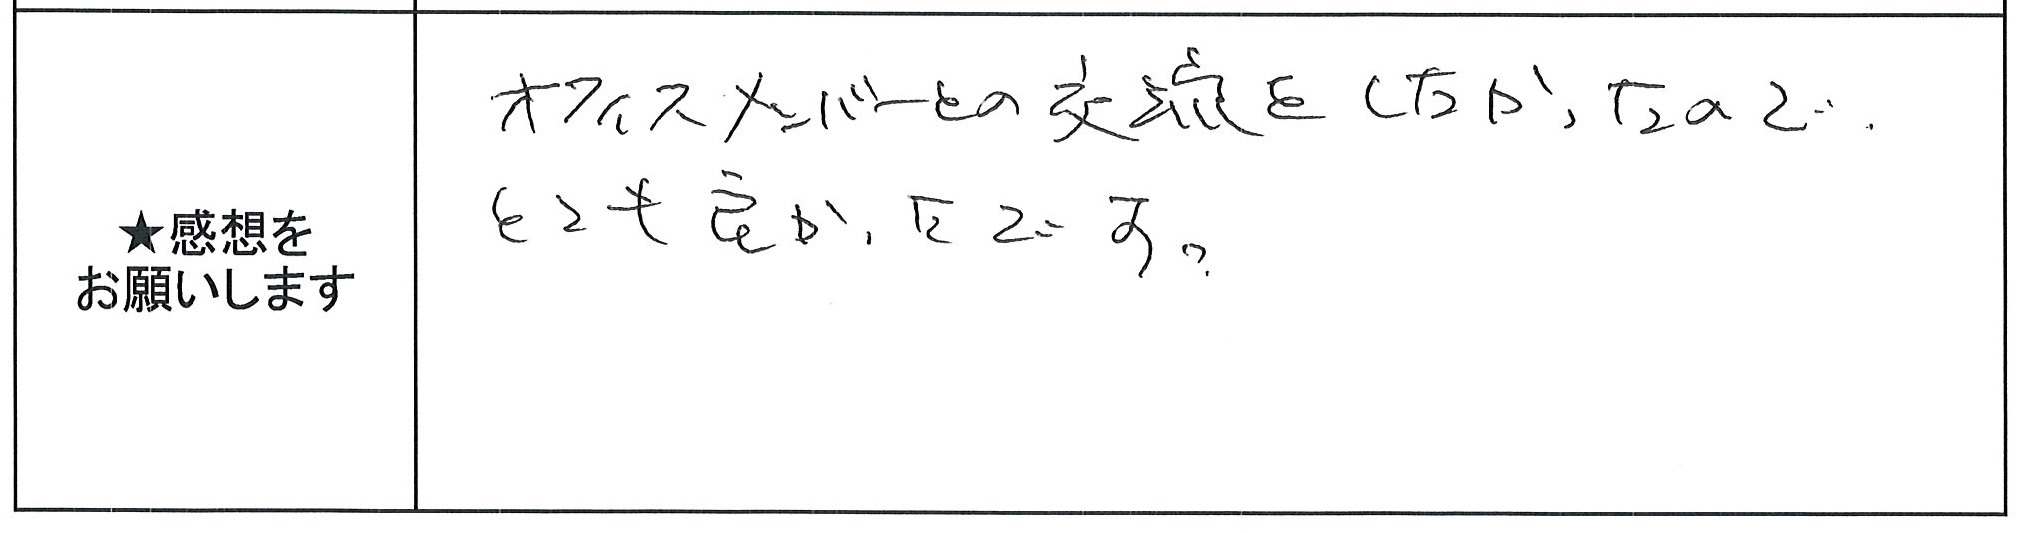 ★感想を
お願いします
オフィスメンバーとの交流をしたかったので、
とても良かったです。